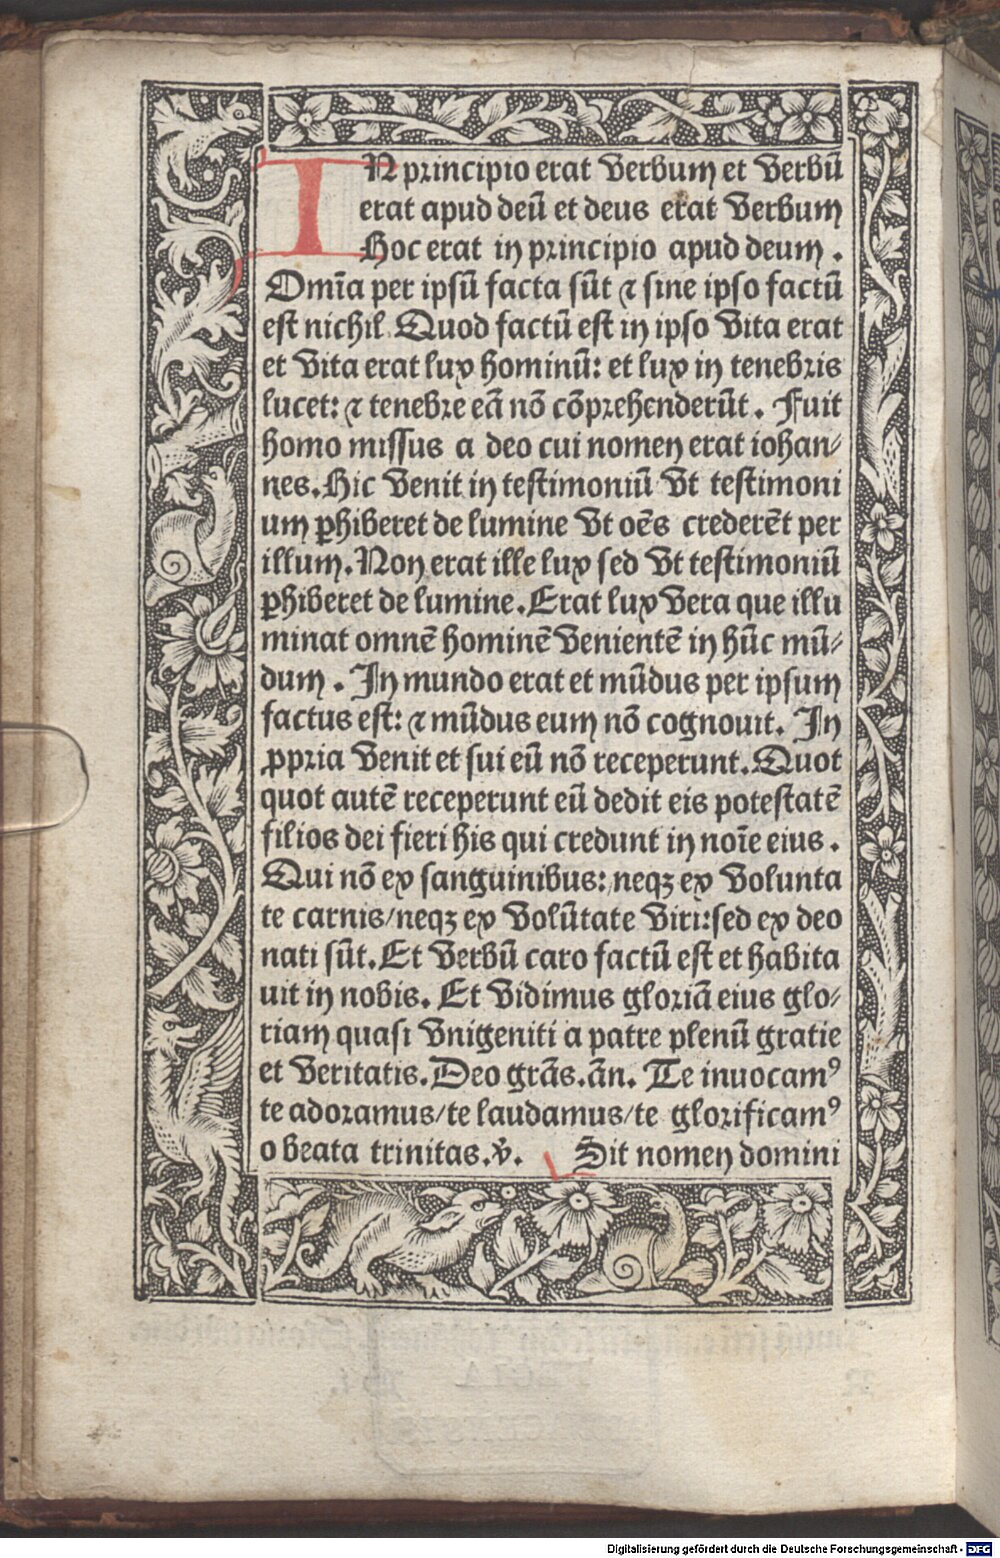 IN principio erat Verbum et Verbū
erat apud deū et deus erat Verbum
Hoc erat in principio apud deum .
Omīa per ipsū facta sūt ⁊ sine ipso factū
est nichil Quod factū est in ipso Vita erat
et Vita erat lux hominū: et lux in tenebris
lucet: ⁊ tenebre eā nō cōprehenderūt . Fuit
homo missus a deo cui nomen erat iohan⸗
nes. Hic Venit in testimoniū Vt testimoni
um ꝑhiberet de lumine Vt oēs crederēt per
illum. Non erat ille lux sed Vt testimoniū
ꝑhiberet de lumine. Erat lux Vera que illu
minat omnē hominē Venientē in hūc mū⸗
dum . In mundo erat et mūdus per ipsum
factus est: ⁊ mūdus eum nō cognouit. In
ꝓpria Venit et sui eū nō receperunt. Quot
quot autē receperunt eū dedit eis potestatē
filios dei fieri his qui credunt in noīe eius .
Qui nō ex sanguinibus: neqꝫ ex Volunta
te carnis/neqꝫ ex Volūtate Viri: sed ex deo
nati sūt. Et Verbū caro factū est et habita
uit in nobis. Et Vidimus gloriā eius glo⸗
riam quasi Vnigeniti a patre plenū gratie
et Veritatis. Deo grās. ān. Te inuocamꝰ
te adoramus/te laudamus/te glorificamꝰ
o beata trinitas. v̄. Sit nomen domini
Digitalisierung gefördert durch die Deutsche Forschungsgemeinschaft - DFG